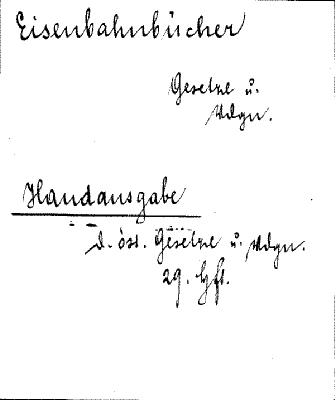 Eisenbahnbücher
Gesetze u.
Vdgn.
Handausgabe
d. öst. Gesetze u. Vdgn.
29. Hft.